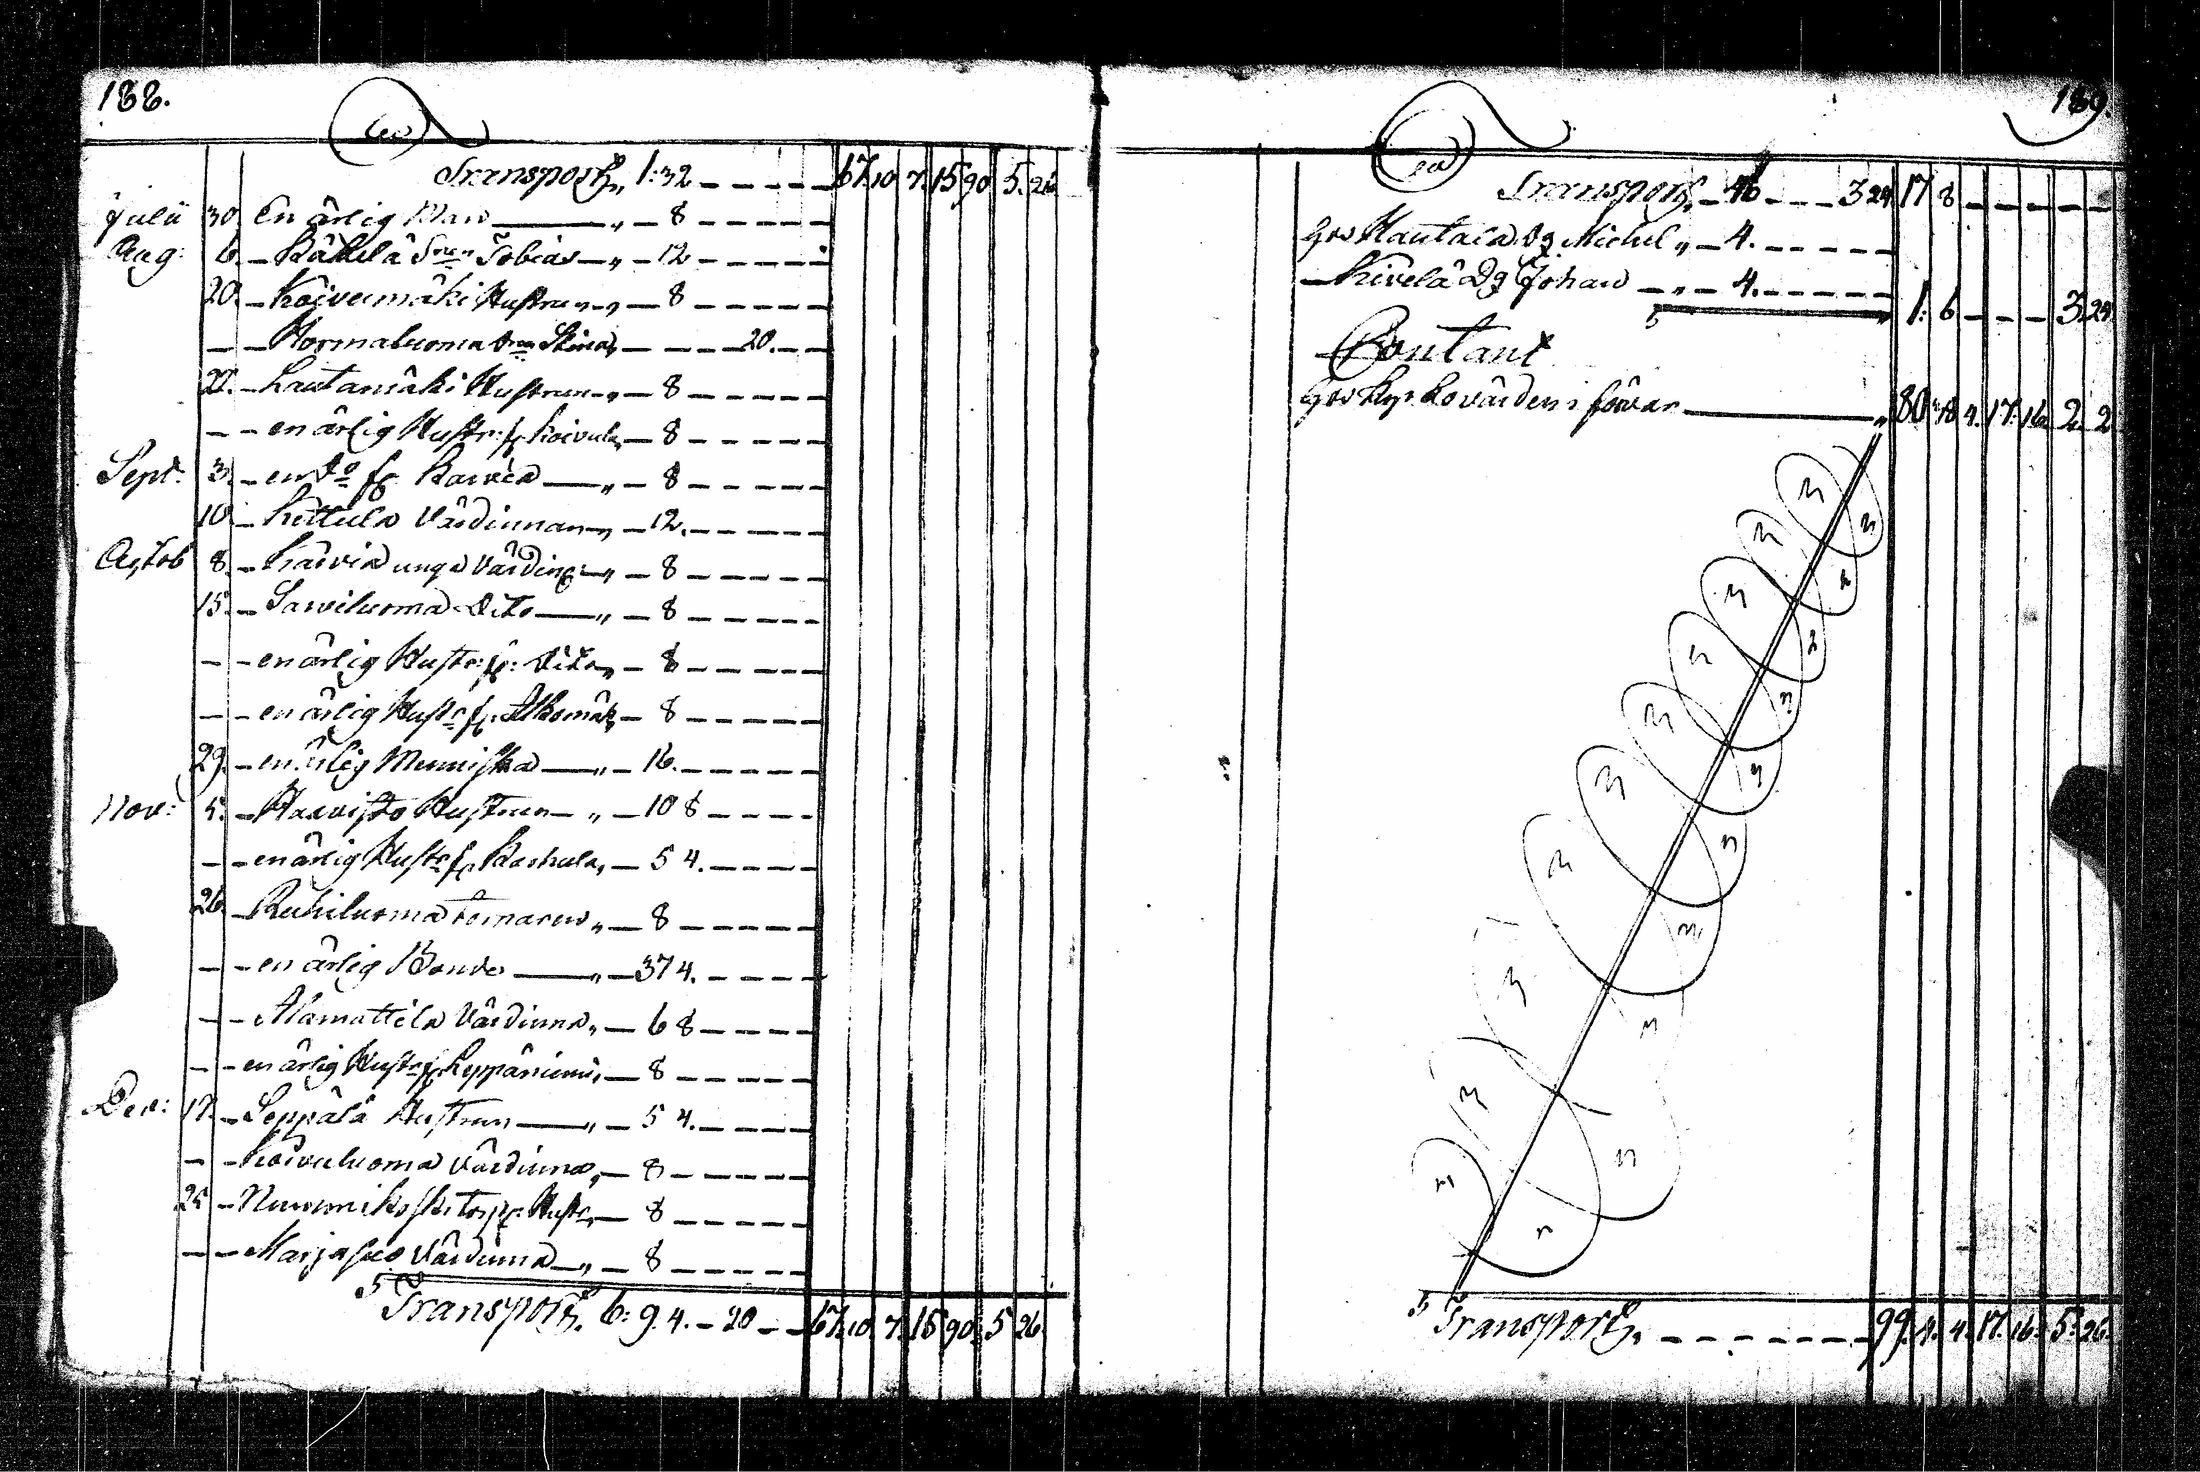 188.
Transport „ 1:32 – – – – – 67. 10 7. 15 90 5. 26
Julii 30. En ärlig Man — „ – 8 – – – –
Aug: 6. – Tobias – „ – 12 – – – –
20. – Koivumäki Hustrun „ – 8 – – – –
– – Normaluoma – – – 20. – –
27. – Lautamäki Hustrun „ – 8 – – – –
– – en ärlig Hustr: fr Koivula „ – 8 – – – –
Sept: 3. – en Do fr Karvia — „ – 8 – – – –
10. – Kettula Värdinnan „ – 12. – – – –
Octob 8. – Karvia unga Värdin: „ – 8 – – – –
15. – Sarviluoma Dito — „ – 8 – – – –
– – en ärlig Hustr: fr: Dito „ – 8 – – – –
– – en ärlig Hustr fr: – 8 – – – –
29. – en ärlig Menniska — „ – 16. – – – –
Nov: 5. – Harvisto Hustrun – „ – 10 8 – – – –
– – en ärlig Hustr fr Kashula „ – 5 4. – – – –
26. – Ruhiluoma „ – 8 – – – –
– – en ärlig Bonde — „ – 37 4. – – – –
– – Alamattila Värdinna „ – 6 8 – – – –
– – en ärlig Hustr fr Leppäniemi „ – 8 – – – –
Dec: 17. – Seppälä Hustrun — „ – 5 4. – – – –
– – Koivuluoma Värdinna „ – 8 – – – –
25 – Hustr „ – 8 – – – –
– – Marjasuo Värdinna „ – 8 – – – –
Transport. 6: 9. 4. – 20 – – 67. 10. 7. 15 90. 5 26.
189.
Transport. – 46 – – – 3 24. 17 8 – – – – –
hos Hautala Dg Michel „ – 4. – – – –
– Kivelä Dg Johan – „ – 4. – – – –
1. 6 – – – 3. 24.
Contant
hos Kyrkovärden i förvar — „ 80. 18 4. 17. 16. 2. 2
Transport. – – – – – – – 99. 4. 4. 17. 16. 5. 26.